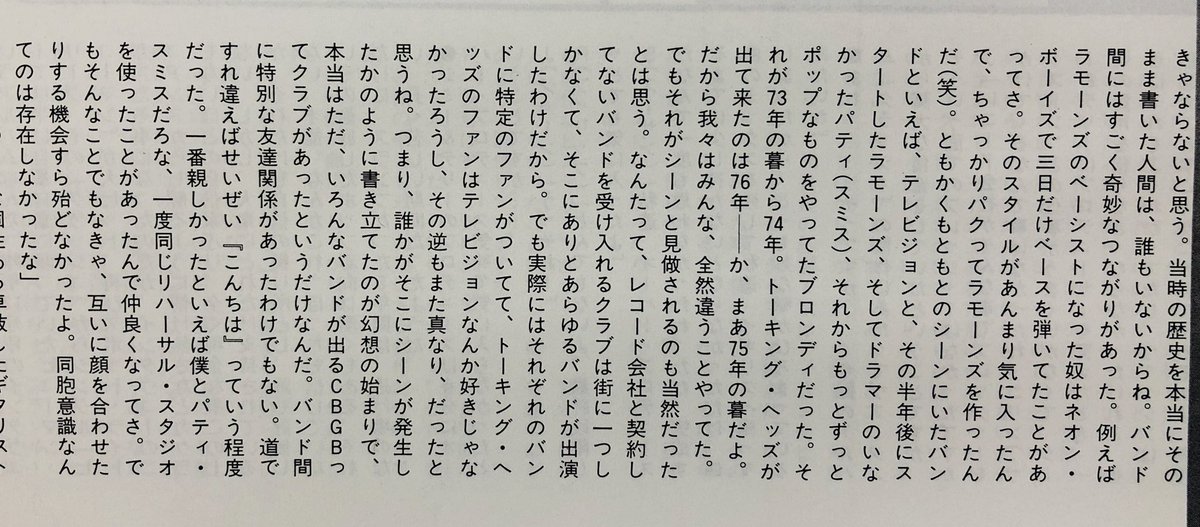 きゃならないと思う。当時の歴史を本当にその
まま書いた人間は、誰もいないからね。バンド
間にはすごく奇妙なつながりがあった。例えば
ラモーンズのベーシストになった奴はネオン・
ボーイズで三日だけベースを弾いてたことがあ
ってさ。そのスタイルがあんまり気に入ったん
で、ちゃっかりパクってラモーンズを作ったん
だ(笑)。ともかくもともとのシーンにいたバン
ドといえば、テレビジョンと、その半年後にス
タートしたラモーンズ、そしてドラマーのいな
かったパティ(スミス)、それからもっとずっと
ポップなものをやってたブロンディだった。そ
れが73年の暮から74年。トーキング・ヘッズが
出て来たのは76年――か、まあ75年の暮だよ。
だから我々はみんな、全然違うことやってた。
でもそれがシーンと見做されるのも当然だった
とは思う。なんたって、レコード会社と契約し
てないバンドを受け入れるクラブは街に一つし
かなくて、そこにありとあらゆるバンドが出演
したわけだから。でも実際にはそれぞれのバン
ドに特定のファンがついてて、トーキング・ヘ
ッズのファンはテレビジョンなんか好きじゃな
かったろうし、その逆もまた真なり、だったと
思うね。つまり、誰かがそこにシーンが発生し
たかのように書き立てたのが幻想の始まりで、
本当はただ、いろんなバンドが出るCBGBっ
てクラブがあったというだけなんだ。バンド間
に特別な友達関係があったわけでもない。道で
すれ違えばせいぜい『こんちは』っていう程度
だった。一番親しかったといえば僕とパティ・
スミスだろな、一度同じリハーサル・スタジオ
を使ったことがあったんで仲良くなってさ。で
もそんなことでもなきゃ、互いに顔を合わせた
りする機会すら殆どなかったよ。同胞意識なん
てのは存在しなかったな」